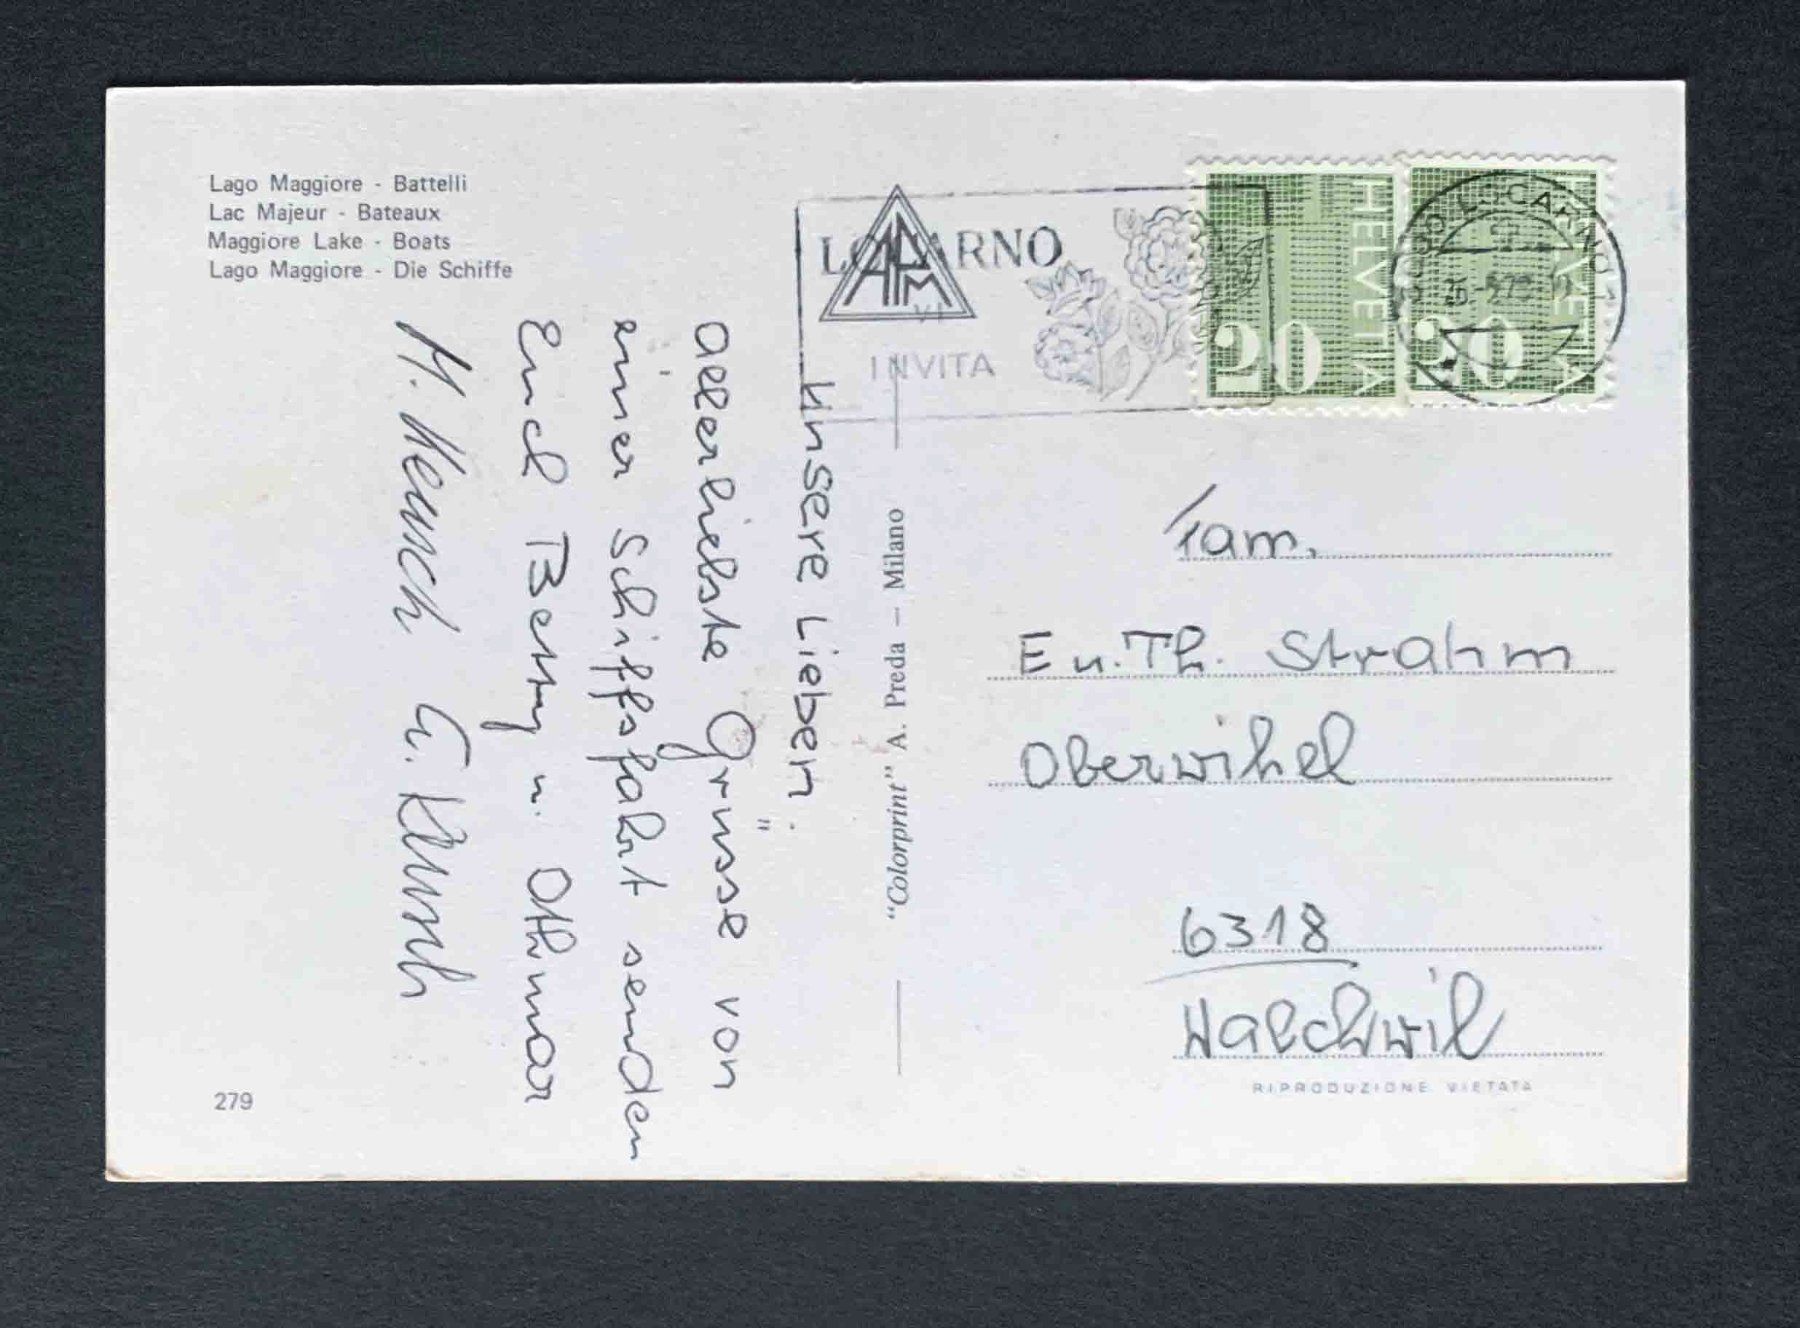 Lago Maggiore - Battelli
Lac Majeur - Bateaux
Maggiore Lake - Boats
Lago Maggiore - Die Schiffe
Unsere Lieben.
Allerliebste Grüsse von
einer Schiffsfahrt senden
Euch Betty u. Othmar
279
"Colorprint" A. Preda – Milano
LOCARNO
VI
INVITA
APM
HELVETIA
20
HELVETIA
20
LOCARNO
Fam.
E u. Th. Strahm
Oberwihel
6318
Walchwil
RIPRODUZIONE VIETATA